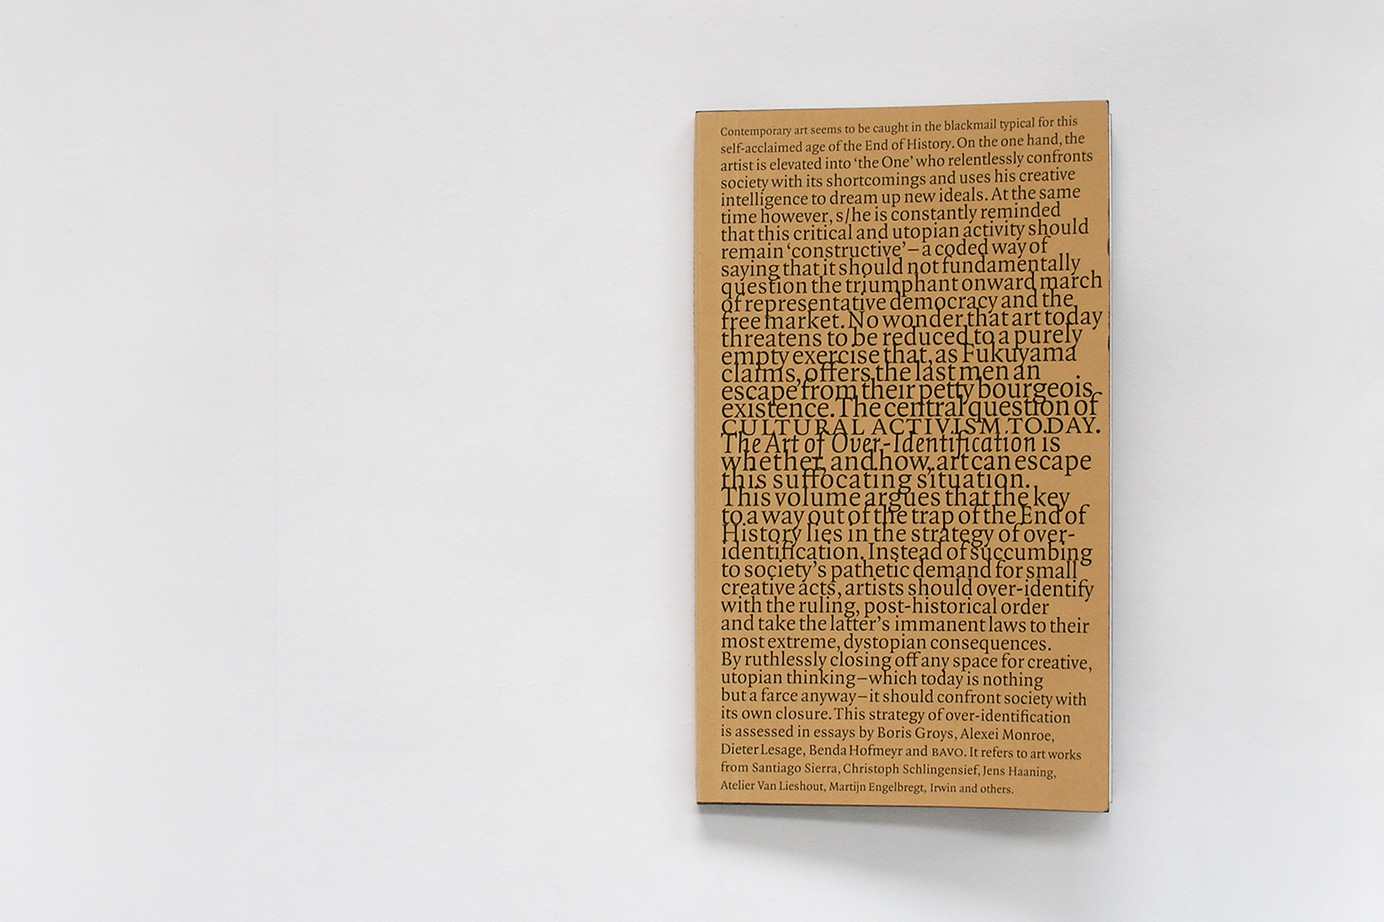 Contemporary art seems to be caught in the blackmail typical for this
self-acclaimed age of the End of History. On the one hand, the
artist is elevated into ‘the One’ who relentlessly confronts
society with its shortcomings and uses his creative
intelligence to dream up new ideals. At the same
time however, s/he is constantly reminded
that this critical and utopian activity should
remain ‘constructive’ – a coded way of
saying that it should not fundamentally
question the triumphant onward march
of representative democracy and the
free market. No wonder that art today
threatens to be reduced to a purely
empty exercise that, as Fukuyama
claims, offers the last men an
escape from their petty bourgeois
existence. The central question of
CULTURAL ACTIVISM TODAY.
The Art of Over-Identification is
whether, and how, art can escape
this suffocating situation.
This volume argues that the key
to a way out of the trap of the End of
History lies in the strategy of over-
identification. Instead of succumbing
to society’s pathetic demand for small
creative acts, artists should over-identify
with the ruling, post-historical order
and take the latter’s immanent laws to their
most extreme, dystopian consequences.
By ruthlessly closing off any space for creative,
utopian thinking – which today is nothing
but a farce anyway – it should confront society with
its own closure. This strategy of over-identification
is assessed in essays by Boris Groys, Alexei Monroe,
Dieter Lesage, Benda Hofmeyr and BAVO. It refers to art works
from Santiago Sierra, Christoph Schlingensief, Jens Haaning,
Atelier Van Lieshout, Martijn Engelbregt, Irwin and others.